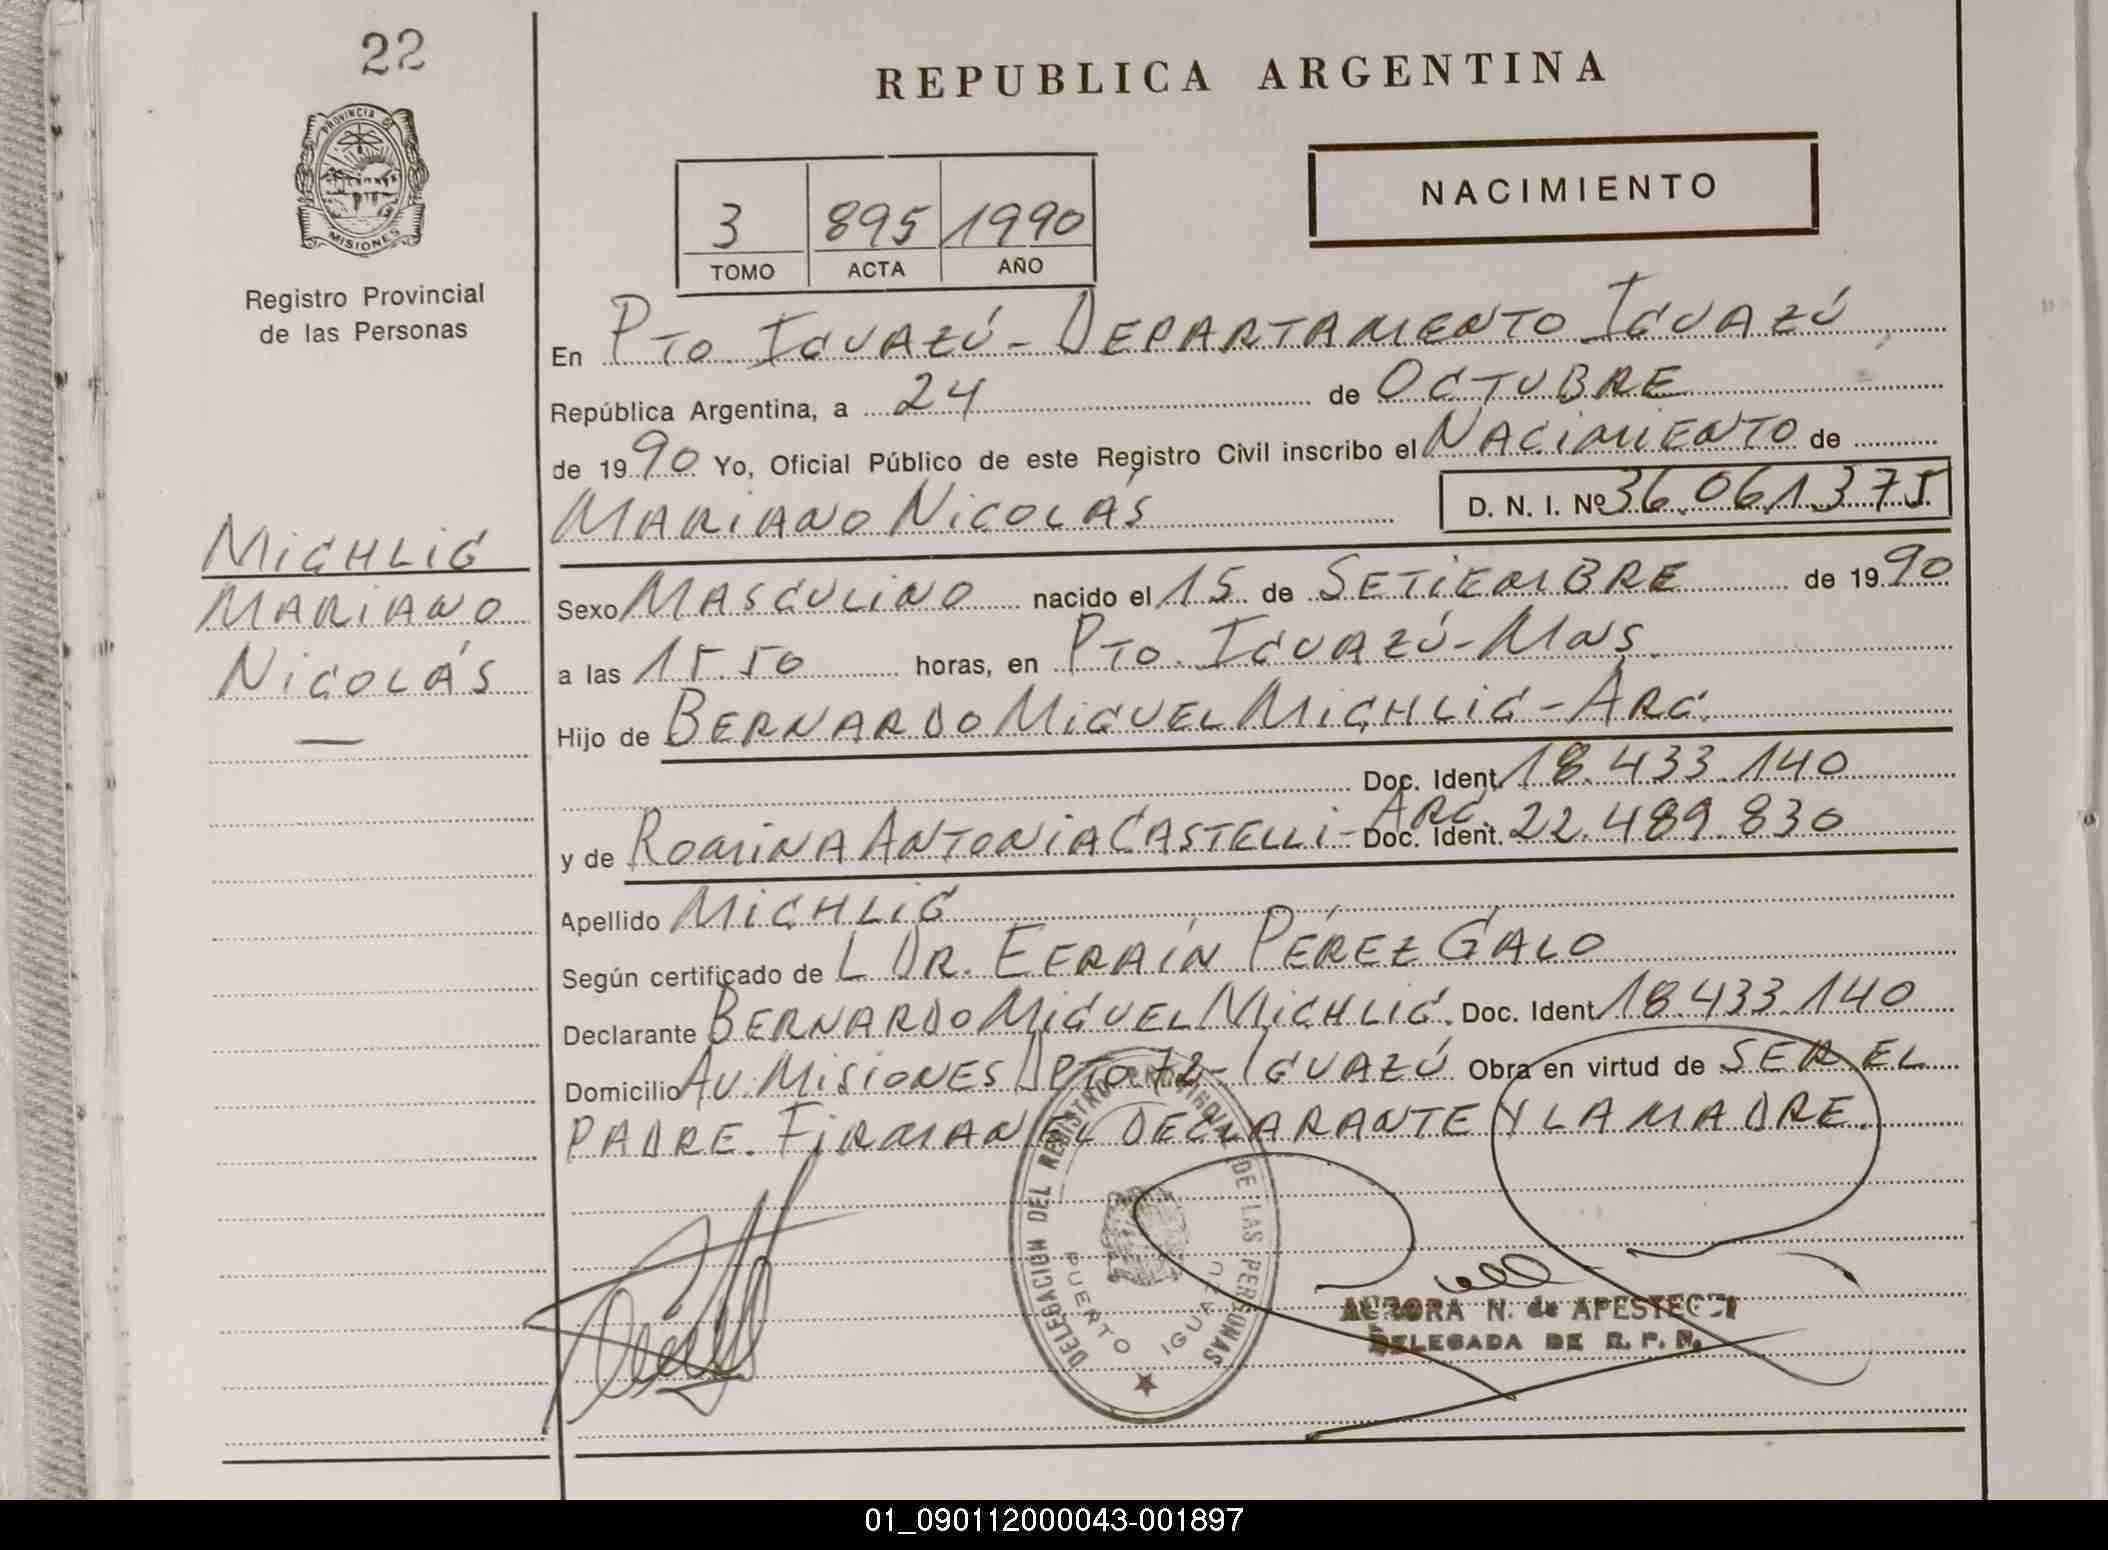 22
PROVINCIA DE
MISIONES
Registro Provincial
de las Personas
MICHLIG
MARIANO
NICOLÁS
—
REPUBLICA ARGENTINA
NACIMIENTO
3 895 1990
TOMO ACTA AÑO
En PTO. IGUAZÚ - DEPARTAMENTO IGUAZÚ
República Argentina, a 24 de OCTUBRE
de 1990 Yo, Oficial Público de este Registro Civil inscribo el NACIMIENTO de
MARIANO NICOLÁS D. N. I. Nº 36.061.375
Sexo MASCULINO nacido el 15 de SETIEMBRE de 1990
a las 15.50 horas, en PTO. IGUAZÚ - MNS.
Hijo de BERNARDO MIGUEL MICHLIG - ARG.
Doc. Ident. 18.433.140
y de ROMINA ANTONIA CASTELLI - ARG. Doc. Ident. 22.489.830
Apellido MICHLIG
Según certificado de L DR. EFRAÍN PÉREZ GALO
Declarante BERNARDO MIGUEL MICHLIG. Doc. Ident 18.433.140
Domicilio AV. MISIONES DPTO 72 - IGUAZÚ Obra en virtud de SER EL
PADRE. FIRMAN EL DECLARANTE Y LA MADRE.
DELEGACION DEL REGISTRO PROVINCIAL DE LAS PERSONAS
PUERTO IGUAZU
AURORA N. de APESTEGUI
DELEGADA DE R. P. P.
01_090112000043-001897